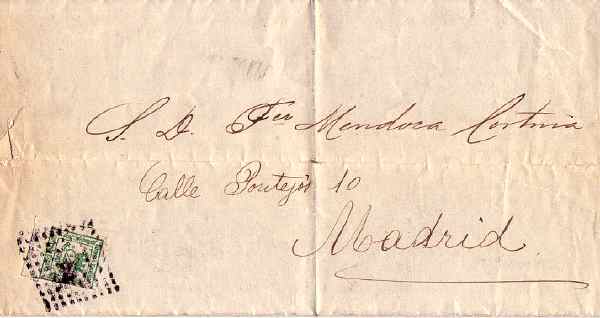 S. D. Fco Mendoza Cortina
Calle Pontejos 10
Madrid